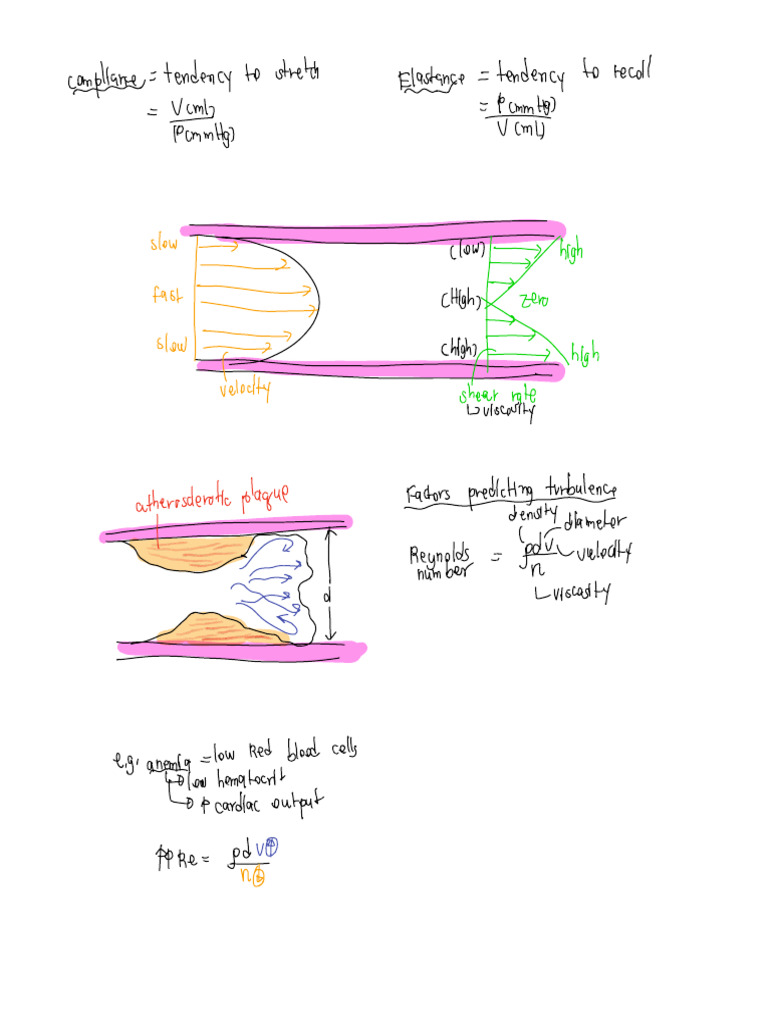 compliance = tendency to stretch
= V(mL)
P(mmHg)
Elastance = tendency to recoil
= P(mmHg)
V(mL)
slow
fast
slow
velocity
(low)
(High)
(high)
high
zero
high
shear rate
↳ viscosity
atherosclerotic plaque
d
Factors predicting turbulence
density
diameter
Reynolds number = ρdv
velocity
n
↳ viscosity
e.g. anemia = low red blood cells
↳ low hematocrit
↳ ↑ cardiac output
↑↑ Re = ρdv↑
n↓